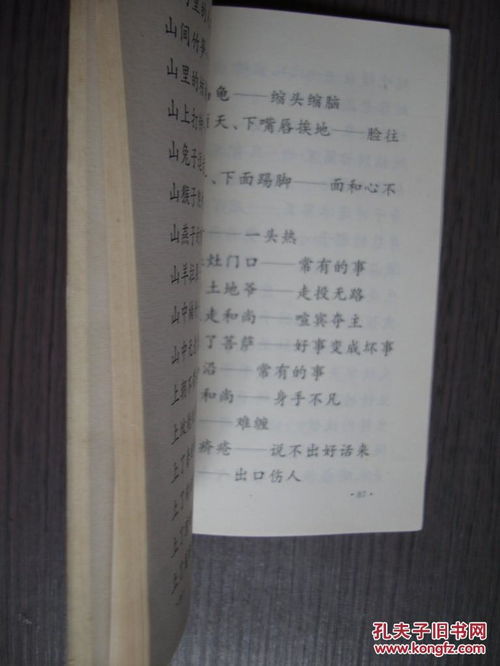 山间竹
山里的
山上打
山兔子
山猴子
山燕子
山羊拉
山中
山中
上
上
上了
上了
上
上
龟——缩头缩脑
天、下嘴唇挨地——脸往
、下面踢脚——面和心不
——一头热
灶门口——常有的事
土地爷——走投无路
走和尚——喧宾夺主
了菩萨——好事变成坏事
沿——常有的事
和尚——身手不凡
——难缠
疥疮——说不出好话来
——出口伤人
·87·
孔夫子旧书网
www.kongfz.com